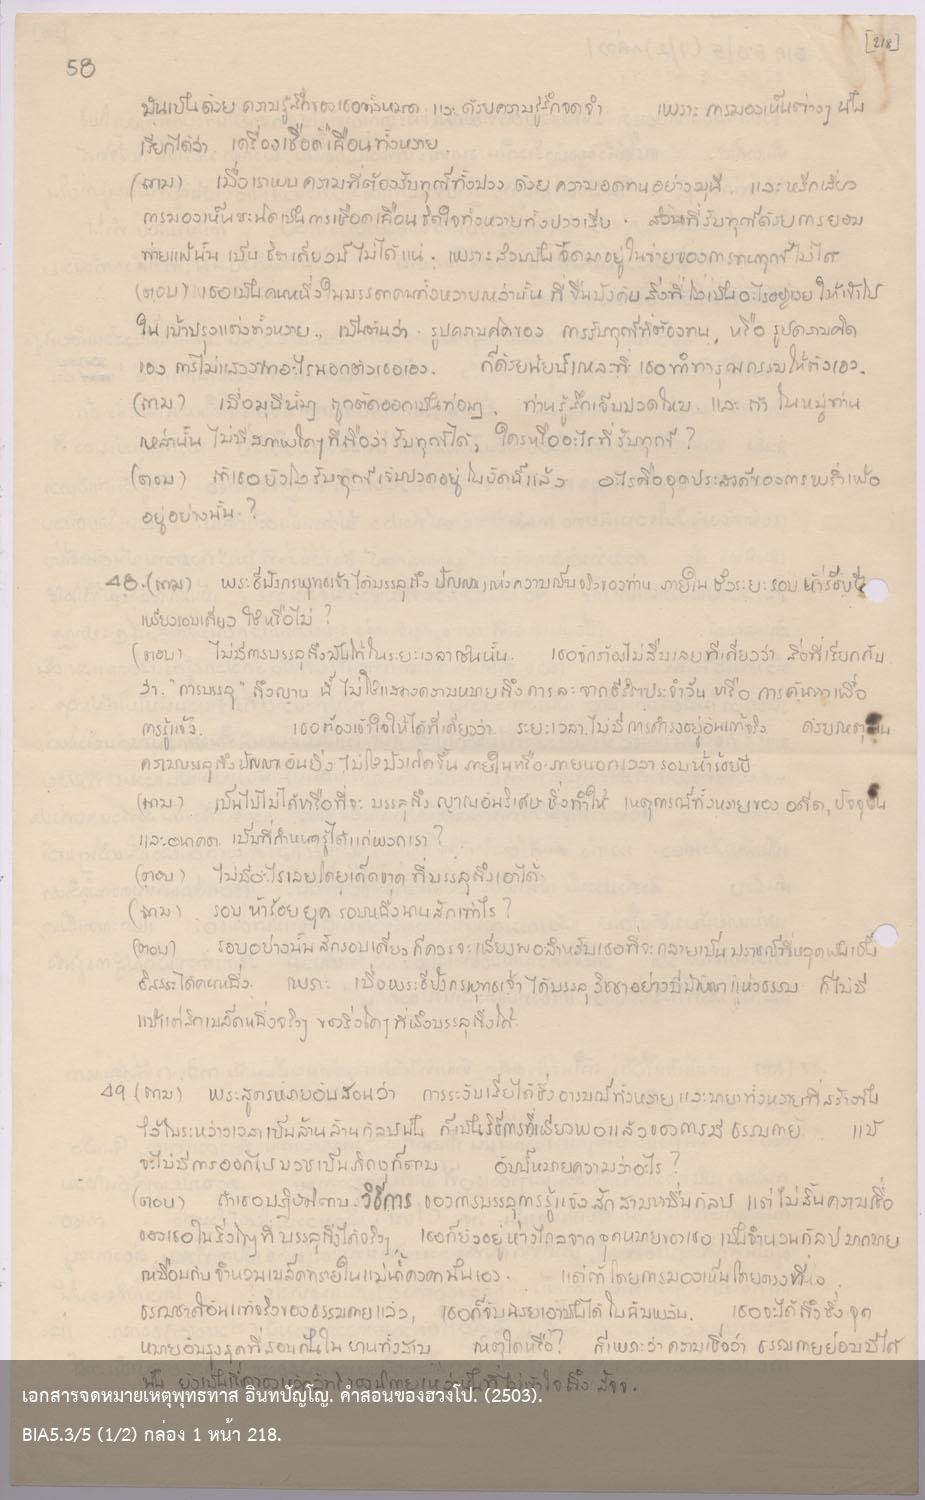 58
[218]
มันเป็นด้วย ความรู้สึกของเธอทั้งหมด และ ด้วยความรู้สึกจดจำ เพราะ การมองเห็นต่างๆ นั้น
เรียกได้ว่า เครื่องเชือดเฉือนทั้งหลาย.
(ถาม) เมื่อเราพบ ความที่ต้องรับทุกข์ทั้งปวง ด้วย ความอดทนอย่างมุนี และ หลีกเลี่ยง
การมองเห็นชนิดเป็นการเชือดเฉือนจิตใจทั้งหลายทั้งปวงเสีย. ส่วนที่รับทุกข์ด้วยการยอม
พ่ายแพ้นั้น เป็น จิตเดียวนี้ ไม่ได้แน่. เพราะสิ่งนั้นจัดมาอยู่ในข่ายของการทนทุกข์ไม่ได้
(ตอบ) เธอเป็นคนหนึ่งในบรรดาคนทั้งหลายเหล่านั้น ที่ขืนบังคับ สิ่งที่ไม่เป็นอะไรอยู่เอง ให้เข้าไป
ใน เบ้าปรุงแต่งทั้งหลาย, เป็นต้นว่า รูปความคิดของ การรับทุกข์ที่ต้องทน, หรือ รูปความคิด
ของ การไม่แสวงหาอะไรนอกตัวเธอเอง. ก็ด้วยนัยนี้แหละที่ เธอทำทารุณกรรมให้ตัวเอง.
(ถาม) เมื่อมุนีนั้นๆ ถูกตัดออกเป็นท่อนๆ, ท่านรู้สึกเจ็บปวดไหม และ ถ้า ในหมู่ท่าน
เหล่านั้น ไม่มีสภาพใดๆ ที่ถือว่า รับทุกข์ได้, ใครหรืออะไรที่รับทุกข์?
(ตอบ) ถ้าเธอยังไม่รับทุกข์เจ็บปวดอยู่ในบัดนี้แล้ว อะไรคือจุดประสงค์ของการพร่ำเพ้อ
อยู่อย่างนั้น.?
48. (ถาม) พระทีปังกรพุทธเจ้า ได้บรรลุถึง ปัญญาแห่งความเป็นจริงของท่าน ภายใน ชั่วระยะรอบ ห้าร้อยปี
เพียงรอบเดียว ใช่หรือไม่?
(ตอบ) ไม่มีการบรรลุถึงอันใดในระยะเวลาเช่นนั้น. เธอจักต้องไม่ลืมเลยทีเดียวว่า สิ่งที่เรียกกัน
ว่า "การบรรลุ" ถึงญาน นี้ ไม่ใช่แสดงความหมายถึง การละจากชีวิตประจำวัน หรือ การค้นหาเพื่อ
การรู้แจ้ง. เธอต้องเข้าใจให้ได้ทีเดียวว่า ระยะเวลาไม่มีการดำรงอยู่อันแท้จริง ด้วยเหตุนั้น
ความบรรลุถึงปัญญาอันยิ่ง ไม่ใช่บังเกิดขึ้น ภายในหรือภายนอกเวลา รอบห้าร้อยปี
(ถาม) เป็นไปไม่ได้หรือที่จะ บรรลุถึง ญานอันวิเศษ ซึ่งทำให้ เหตุการณ์ทั้งหลายของ อดีต, ปัจจุบัน
และอนาคต เป็นที่กำหนดรู้ได้แก่พวกเรา?
(ตอบ) ไม่มีอะไรเลยโดยเด็ดขาด ที่บรรลุถึงเอาได้.
(ถาม) รอบ ห้าร้อย ยุค รอบหนึ่งนานสักเท่าไร?
(ตอบ) รอบอย่างนั้น สักรอบเดียว ก็ควรจะเพียงพอสำหรับเธอที่จะกลายเป็น ปราชญ์ที่หลุดพ้นเป็น
อิสระได้คนหนึ่ง. เพราะ เมื่อพระทีปังกรพุทธเจ้า ได้บรรลุ วิชชาอย่างมีปัญญา แห่งธรรม ก็ไม่มี
แม้แต่สักเมล็ดหนึ่งจริงๆ ของสิ่งใดๆ ที่พึงบรรลุถึงได้.
49 (ถาม) พระสูตรหลายอันสอนว่า การระงับเสียได้ซึ่ง อารมณ์ทั้งหลายและมายาทั้งหลายที่สร้างขึ้น
ไว้ในระหว่างเวลาเป็นล้านล้านกัลป์นั้น ก็เป็นวิธีการที่เพียงพอแล้วของการมี ธรรมกาย แม้
จะไม่มีการออกไปบวชเป็นภิกษุก็ตาม อันนี้หมายความว่าอะไร?
(ตอบ) ถ้าเธอปฏิบัติตาม วิธีการ ของการบรรลุการรู้แจ้งสักสามหมื่นกัลป แต่ ไม่สิ้นความเชื่อ
ของเธอในสิ่งใดๆ ที่ บรรลุถึงได้จริงๆ เธอก็ยังอยู่ห่างไกลจาก จุดหมายของเธอ เป็นจำนวนกัลปมากมาย
เหมือนกับ จำนวนเมล็ดทรายในแม่น้ำคงคานั้นเอง. แต่ถ้าโดยการมองเห็นโดยตรงที่ต่อ
ธรรมชาติอันแท้จริงของธรรมกายแล้ว, เธอก็จับฉวยเอามันได้ ในพริบตา. เธอจะได้ถึงซึ่ง จุด
หมายอันสูงสุดที่สอนกันใน ยานทั้งสาม เหตุใดหรือ? ก็เพราะว่า ความเชื่อว่า ธรรมกายย่อมมีได้
เอกสารจดหมายเหตุพุทธทาส อินทปัญโญ. คำสอนของฮวงโป. (2503).
BIA5.3/5 (1/2) กล่อง 1 หน้า 218.